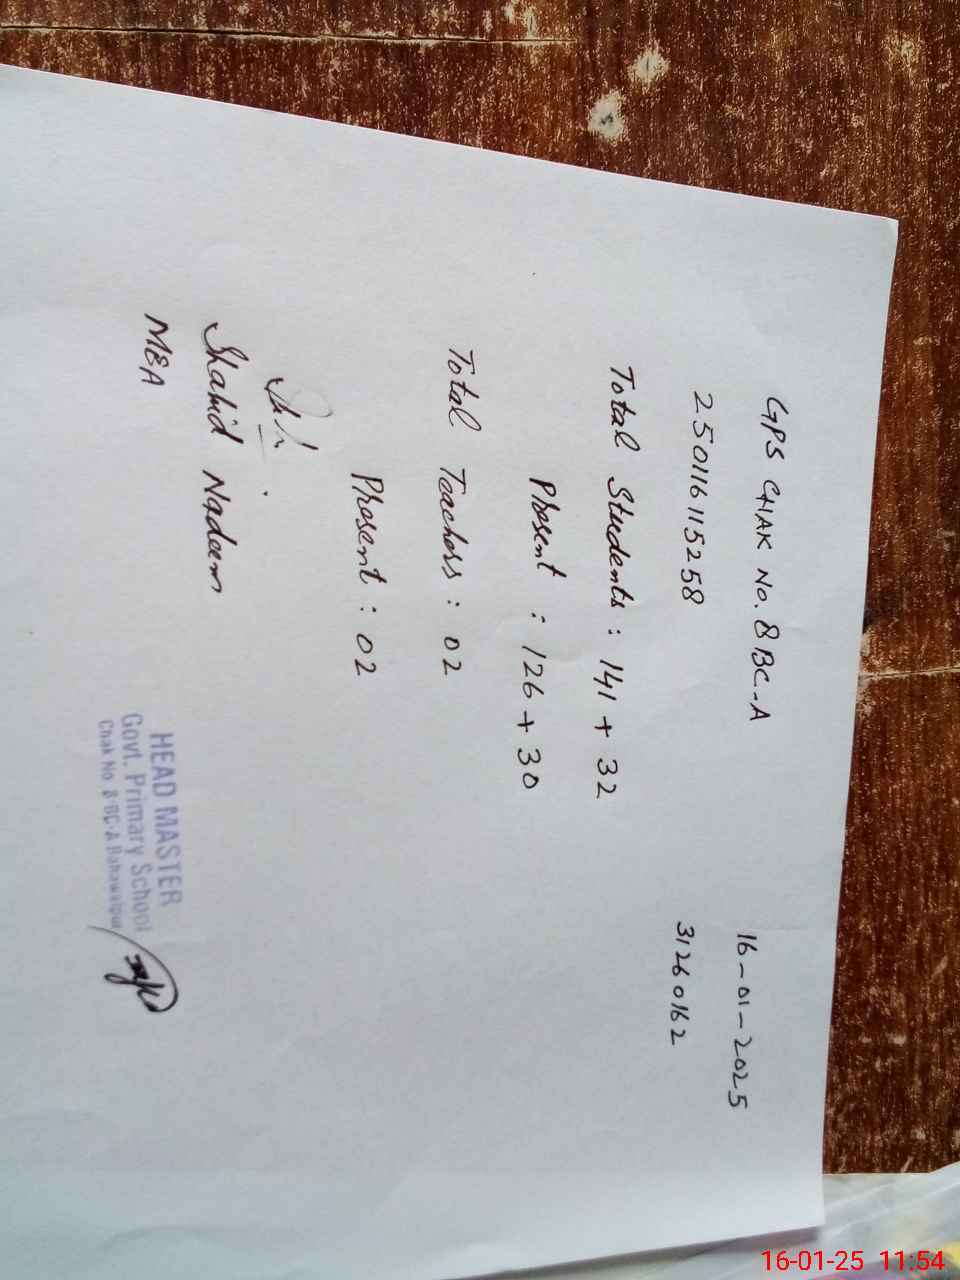 GPS CHAK No. 8 BC-A
16-01-2025
250116115258
31260162
Total Students : 141 + 32
Present : 126 + 30
Total Teachers : 02
Present : 02
Shahid Nadeem
MEA
HEAD MASTER
Govt. Primary School
Chak No. 8-BC-A Bahawalpur
16-01-25 11:54